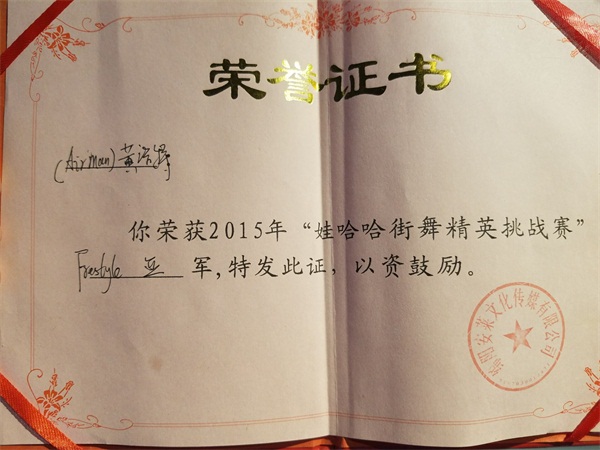 荣誉证书
(Airman)黄浩特
你荣获2015年“娃哈哈街舞精英挑战赛”
Freestyle 亚 军,特发此证,以资鼓励。
安莱文化传媒有限公司